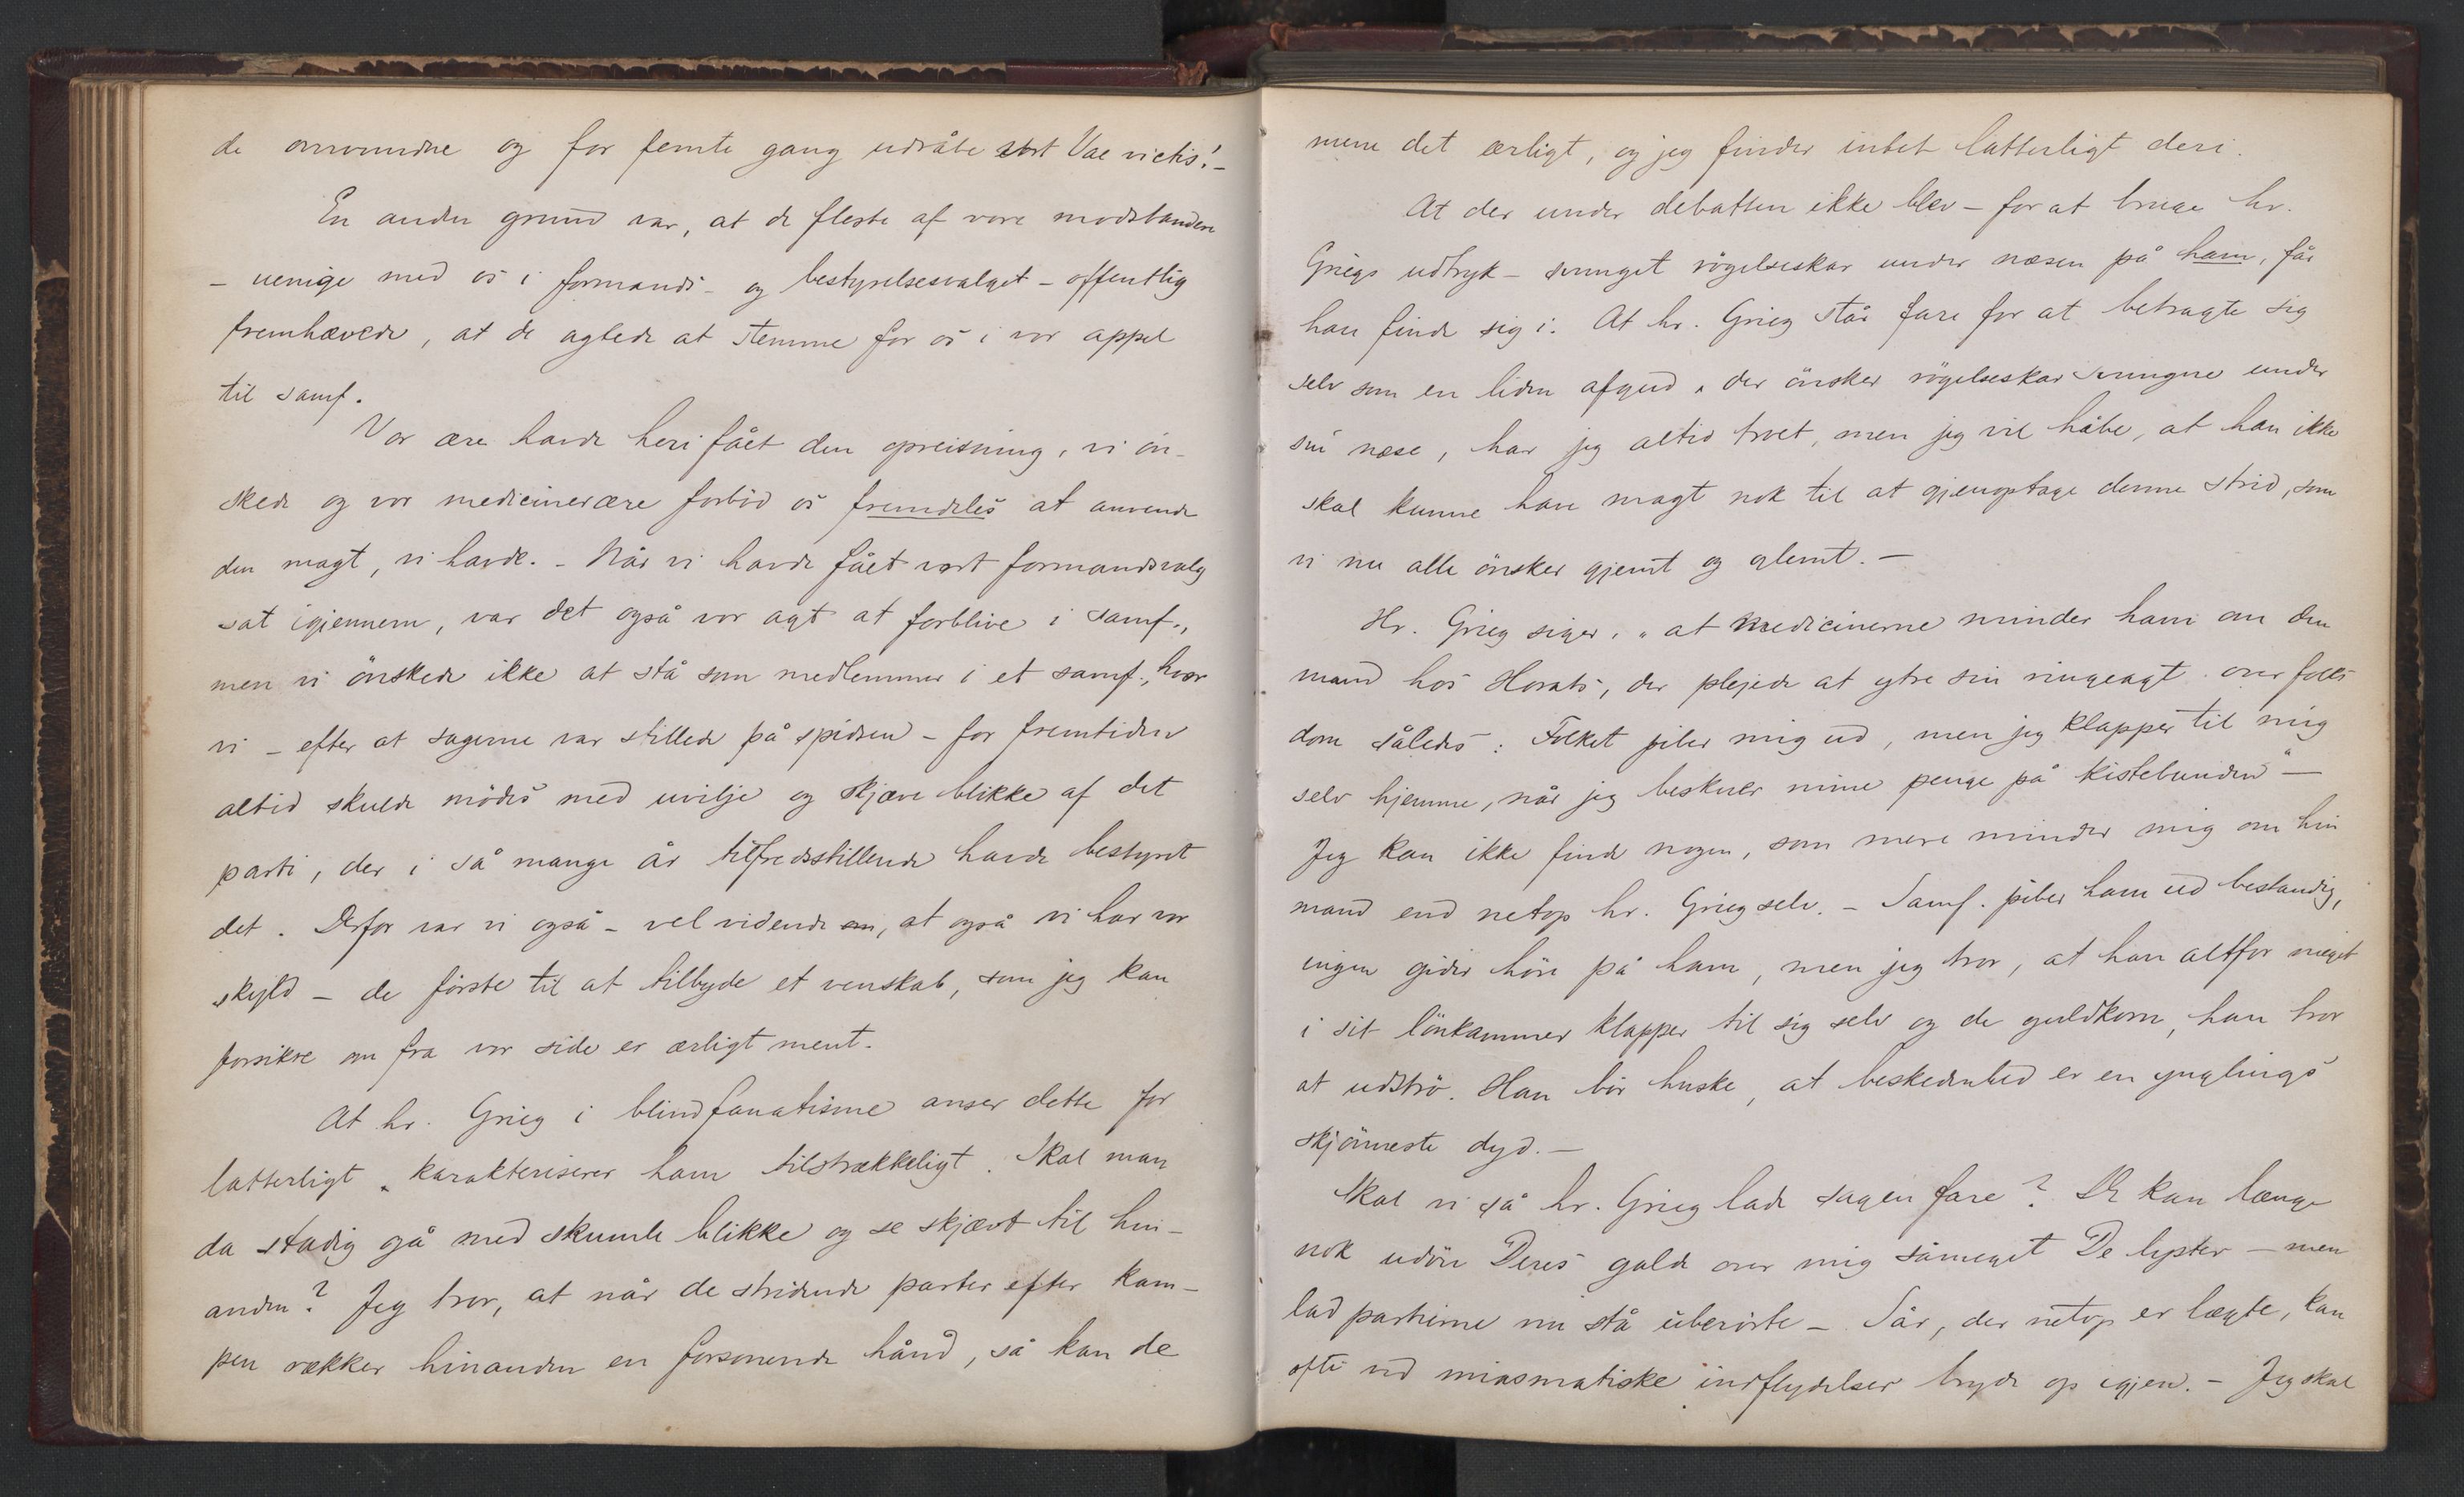 de omvundne og for femte gang udråbe vort Vae victis! –
En anden grund var, at de fleste af vore modstandere
– uenige med os i formands- og bestyrelsesvalget – offentlig
fremhævede, at de agtede at stemme for os i vor appel
til samf.
Vor ære havde heri fået den opreisning, vi ön-
skede og vor medicinerære forbød os fremdeles at anvende
den magt, vi havde. – Når vi havde fået vort formandsvalg
sat igjennem, var det også vor agt at forblive i samf.,
men vi önskede ikke at stå som medlemmer i et samf., hvor
vi – efter at sagerne var stillede på spidsen – for fremtiden
altid skulde mödes med uvilje og skjæve blikke af det
parti, der i så mange år tilfredsstillende havde bestyret
det. Derfor var vi også – vel vidende om, at også vi har vor
skyld – de förste til at tilbyde et venskab, som jeg kan
forsikre om fra vor side er ærligt ment.
At hr. Grieg i blind fanatisme anser dette for
latterligt, karakteriserer ham tilstrækkeligt. Skal man
da stadig gå med skumle blikke og se skjævt til hin-
anden? Jeg tror, at når de stridende parter efter kam-
pen rækker hinanden en forsonende hånd, så kan de
mene det ærligt, og jeg finder intet latterligt deri.
At der under debatten ikke blev – for at bruge hr.
Griegs udtryk – svunget rögelseskar under næsen på ham, får
han finde sig i. At hr. Grieg står fare for at betragte sig
selv som en liden afgud, der önsker rögelseskar svungne under
sin næse, har jeg altid troet, men jeg vil håbe, at han ikke
skal kunne have magt nok til at gjenoptage denne strid, som
vi nu alle önsker gjemt og glemt. –
Hr. Grieg siger, "at medicinerne minder ham om den
mand hos Horats, der plejede at ytre sin ringeagt over folks
dom således: Folket piber mig ud, men jeg klapper til mig
selv hjemme, når jeg beskuer mine penge på kistebunden" –
Jeg kan ikke finde nogen, som mere minder mig om hin
mand end netop hr. Grieg selv. – Samf. piber ham ud bestandig,
ingen gider höre på ham, men jeg tror, at han altfor meget
i sit lönkammer klapper til sig selv og de guldkorn, han tror
at udströ. Han bör huske, at beskedenhed er en ynglings
skjönneste dyd. –
Skal vi så hr. Grieg lade sagen fare? De kan længe
nok udöse Deres galde over mig såmeget De lyster – men
lad partierne nu stå uberörte – Sår, der netop er lægte, kan
ofte ved miasmatiske indflydelser bryde op igjen. – Jeg skal